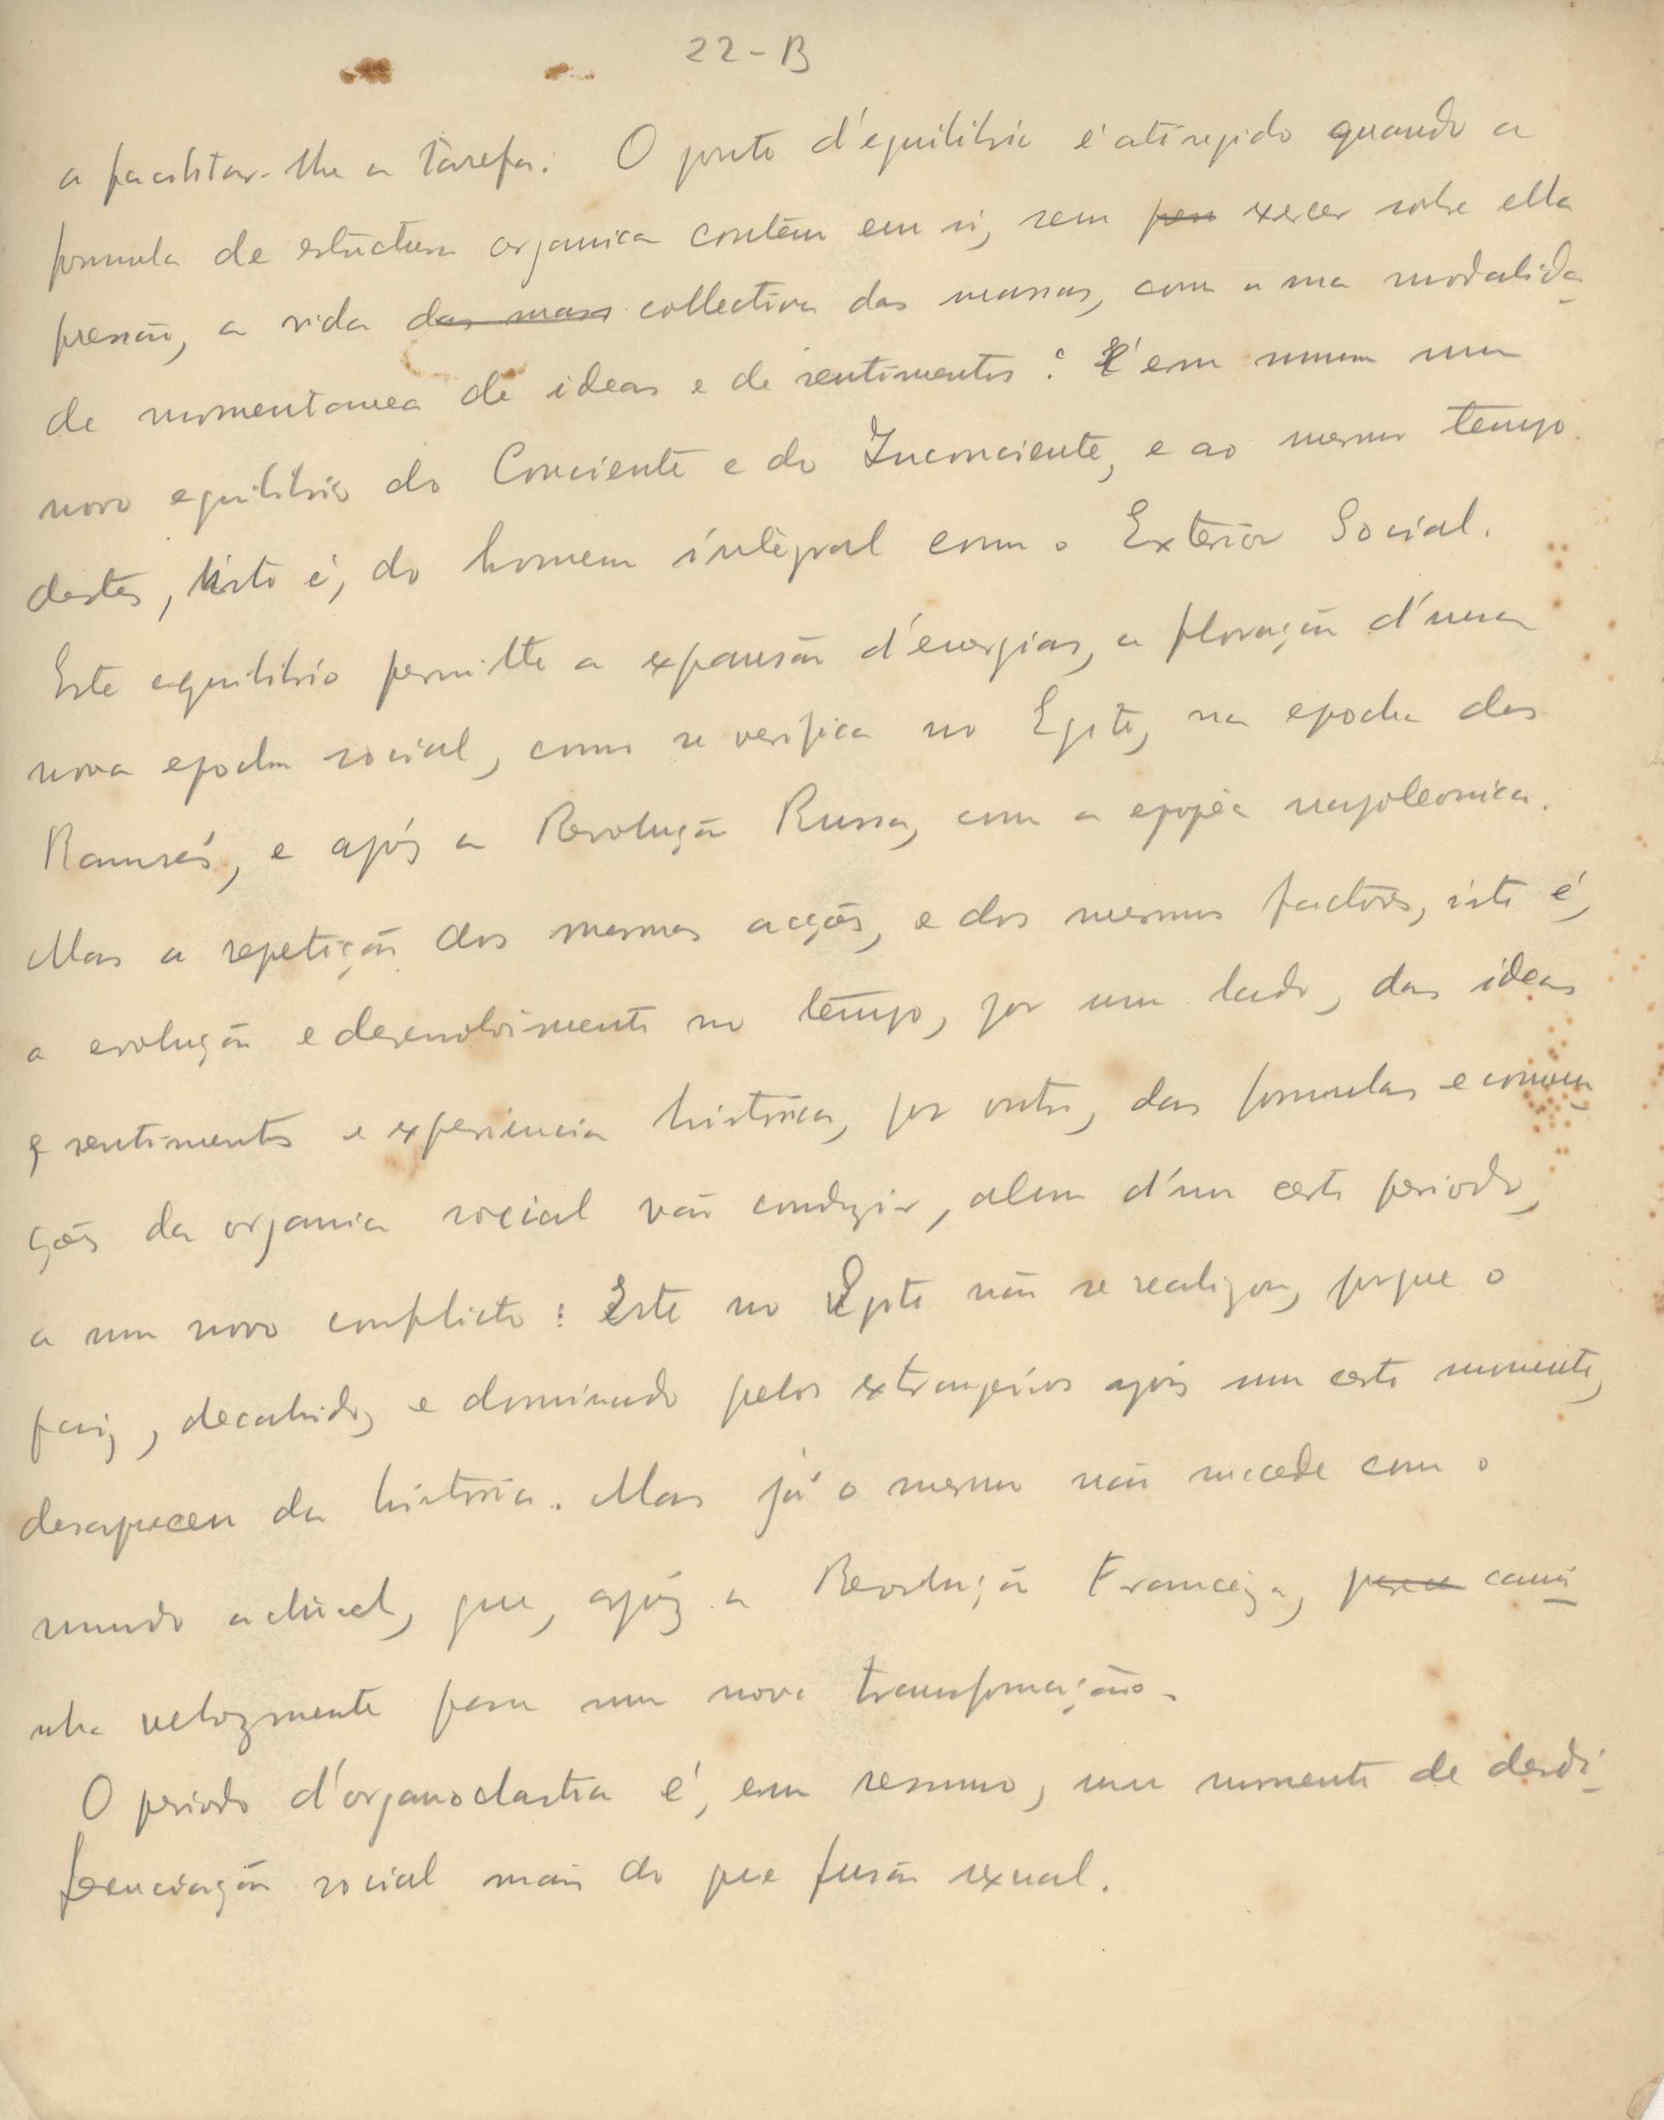 22-B
a facilitar-lhe a tarefa. O ponto d'equilibrio é atingido quando a
formula de estructura organica contem em si, sem pen exercer sobre ella
pressão, a vida das mass collectiva das massas, com a sua modalida
de momentanea de ideas e de sentimentos: É em summa um
novo equilibrio do Conciente e do Inconciente, e ao mesmo tempo
destes, isto é, do homem integral com o Exterior Social.
Este equilibrio permitte a expansão d'energias, a floração d'uma
nova epocha social, como se verifica no Egito, na epocha dos
Ramsés, e após a Revolução Russa, com a epopêa napoleonica.
Mas a repetição dos mesmas acções, e dos mesmos factores, isto é,
a evolução e desenvolvimento no tempo, por um lado, das ideas
e sentimentos e experiencia historica, por outro, das formulas e conven
ções da organica social vão conduzir, alem d'um certo periodo,
a um novo conflicto: Este no Egito não se realizou, porque o
paiz, decahido, e dominado pelos extrangeiros após um certo momento,
desapareceu da historia. Mas já o mesmo não succede com o
mundo actual, que, após a Revolução Franceza, para cami
nha velozmente para uma nova transformação.
O periodo d'organoclastia é, em resumo, um momento de desdi
ferenciação social mais do que fusão sexual.